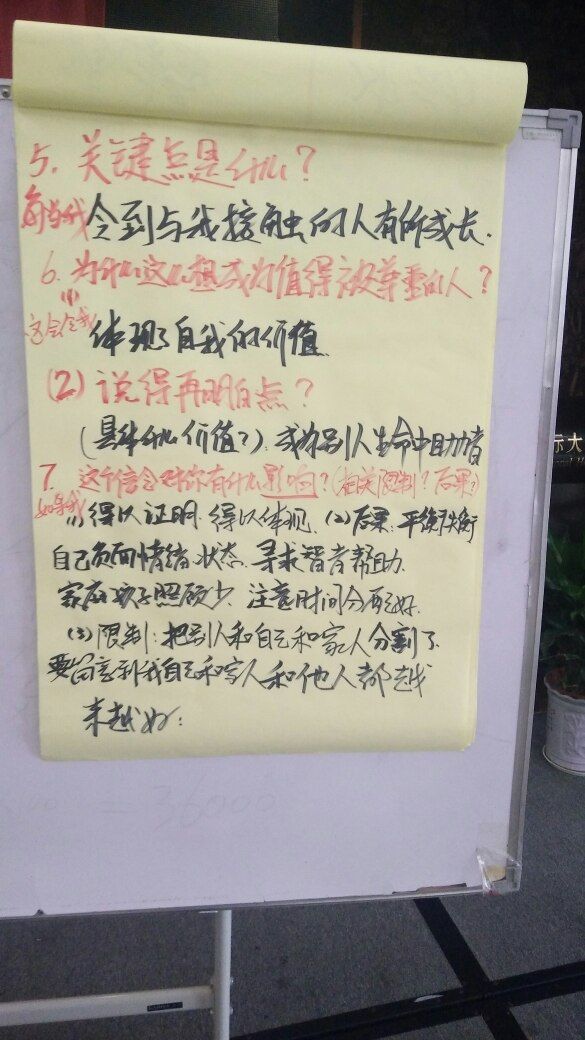 5. 关键点是什么?
每当我 令到与我接触的人有所成长.
6. 为什么这么想成为值得被尊重的人?
(1)
这会令我 体现了自我的价值.
(2) 说得再明白点?
(具体什么价值?). 成为别人生命中助力者
7. 这个信念对你有什么影响?(相关限制? 后果?)
如果我 (1)得以证明. 得以体现. (2)后果. 平衡
自己负面情绪.状态. 寻求智者帮助.
家庭孩子照顾少. 注意时间分配好.
(3)限制: 把别人和自己和家人分割了.
要留意到我自己和家人和他人都越
来越好;
= 36000
际大